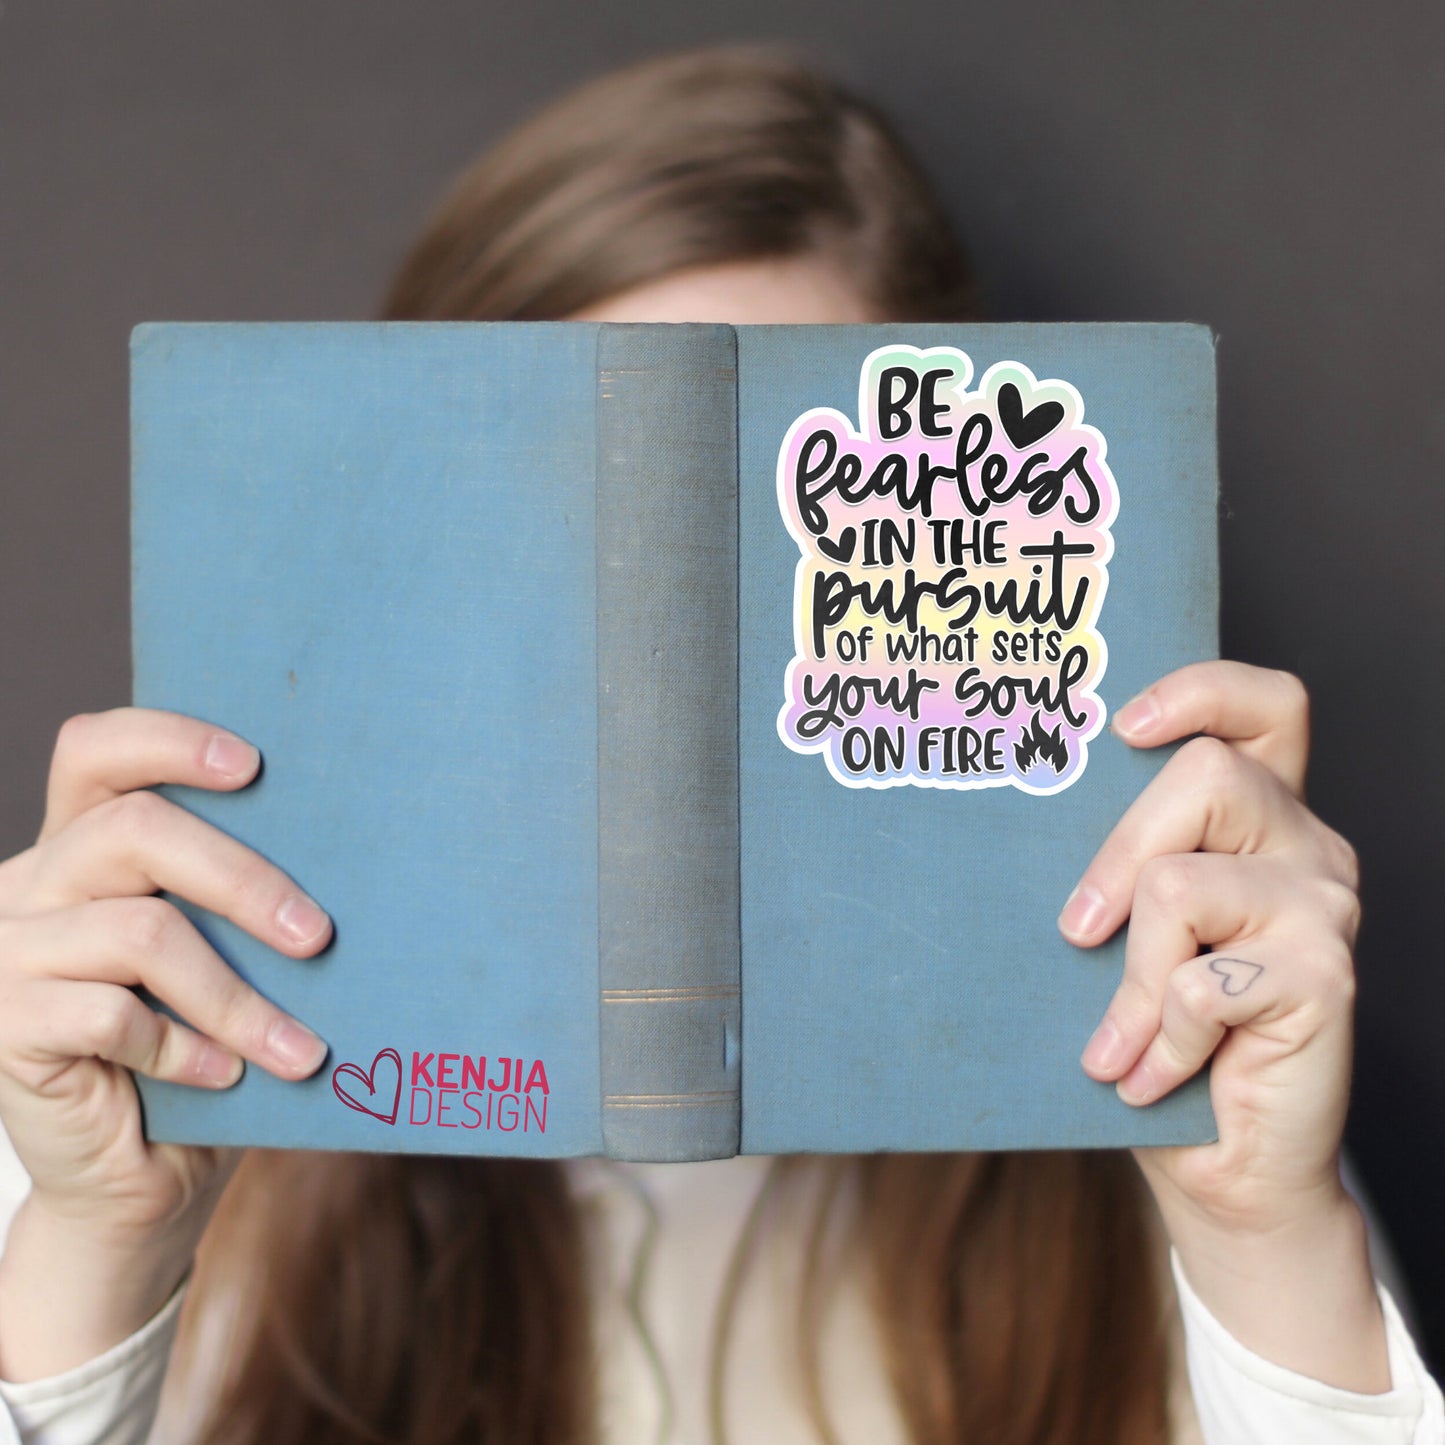 BE
fearless
IN THE
pursuit
OF WHAT SETS
your soul
ON FIRE
KENJIA
DESIGN